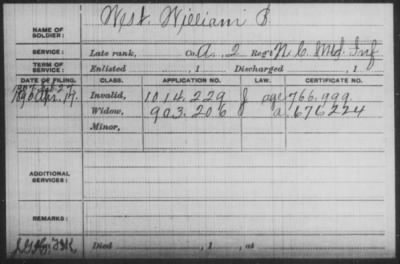 NAME OF SOLDIER: West William P.
SERVICE: Late rank, Co. A. 2 Reg't N. C. Mtd. Inf
TERM OF SERVICE: Enlisted , 1 Discharged , 1
DATE OF FILING. CLASS. APPLICATION NO. LAW. CERTIFICATE NO.
Invalid, 1014.229 J age 766.999
1890 Apr. 19. Widow, 903.206 a 676224
Minor,
ADDITIONAL SERVICES:
REMARKS:
Died , 1 , at